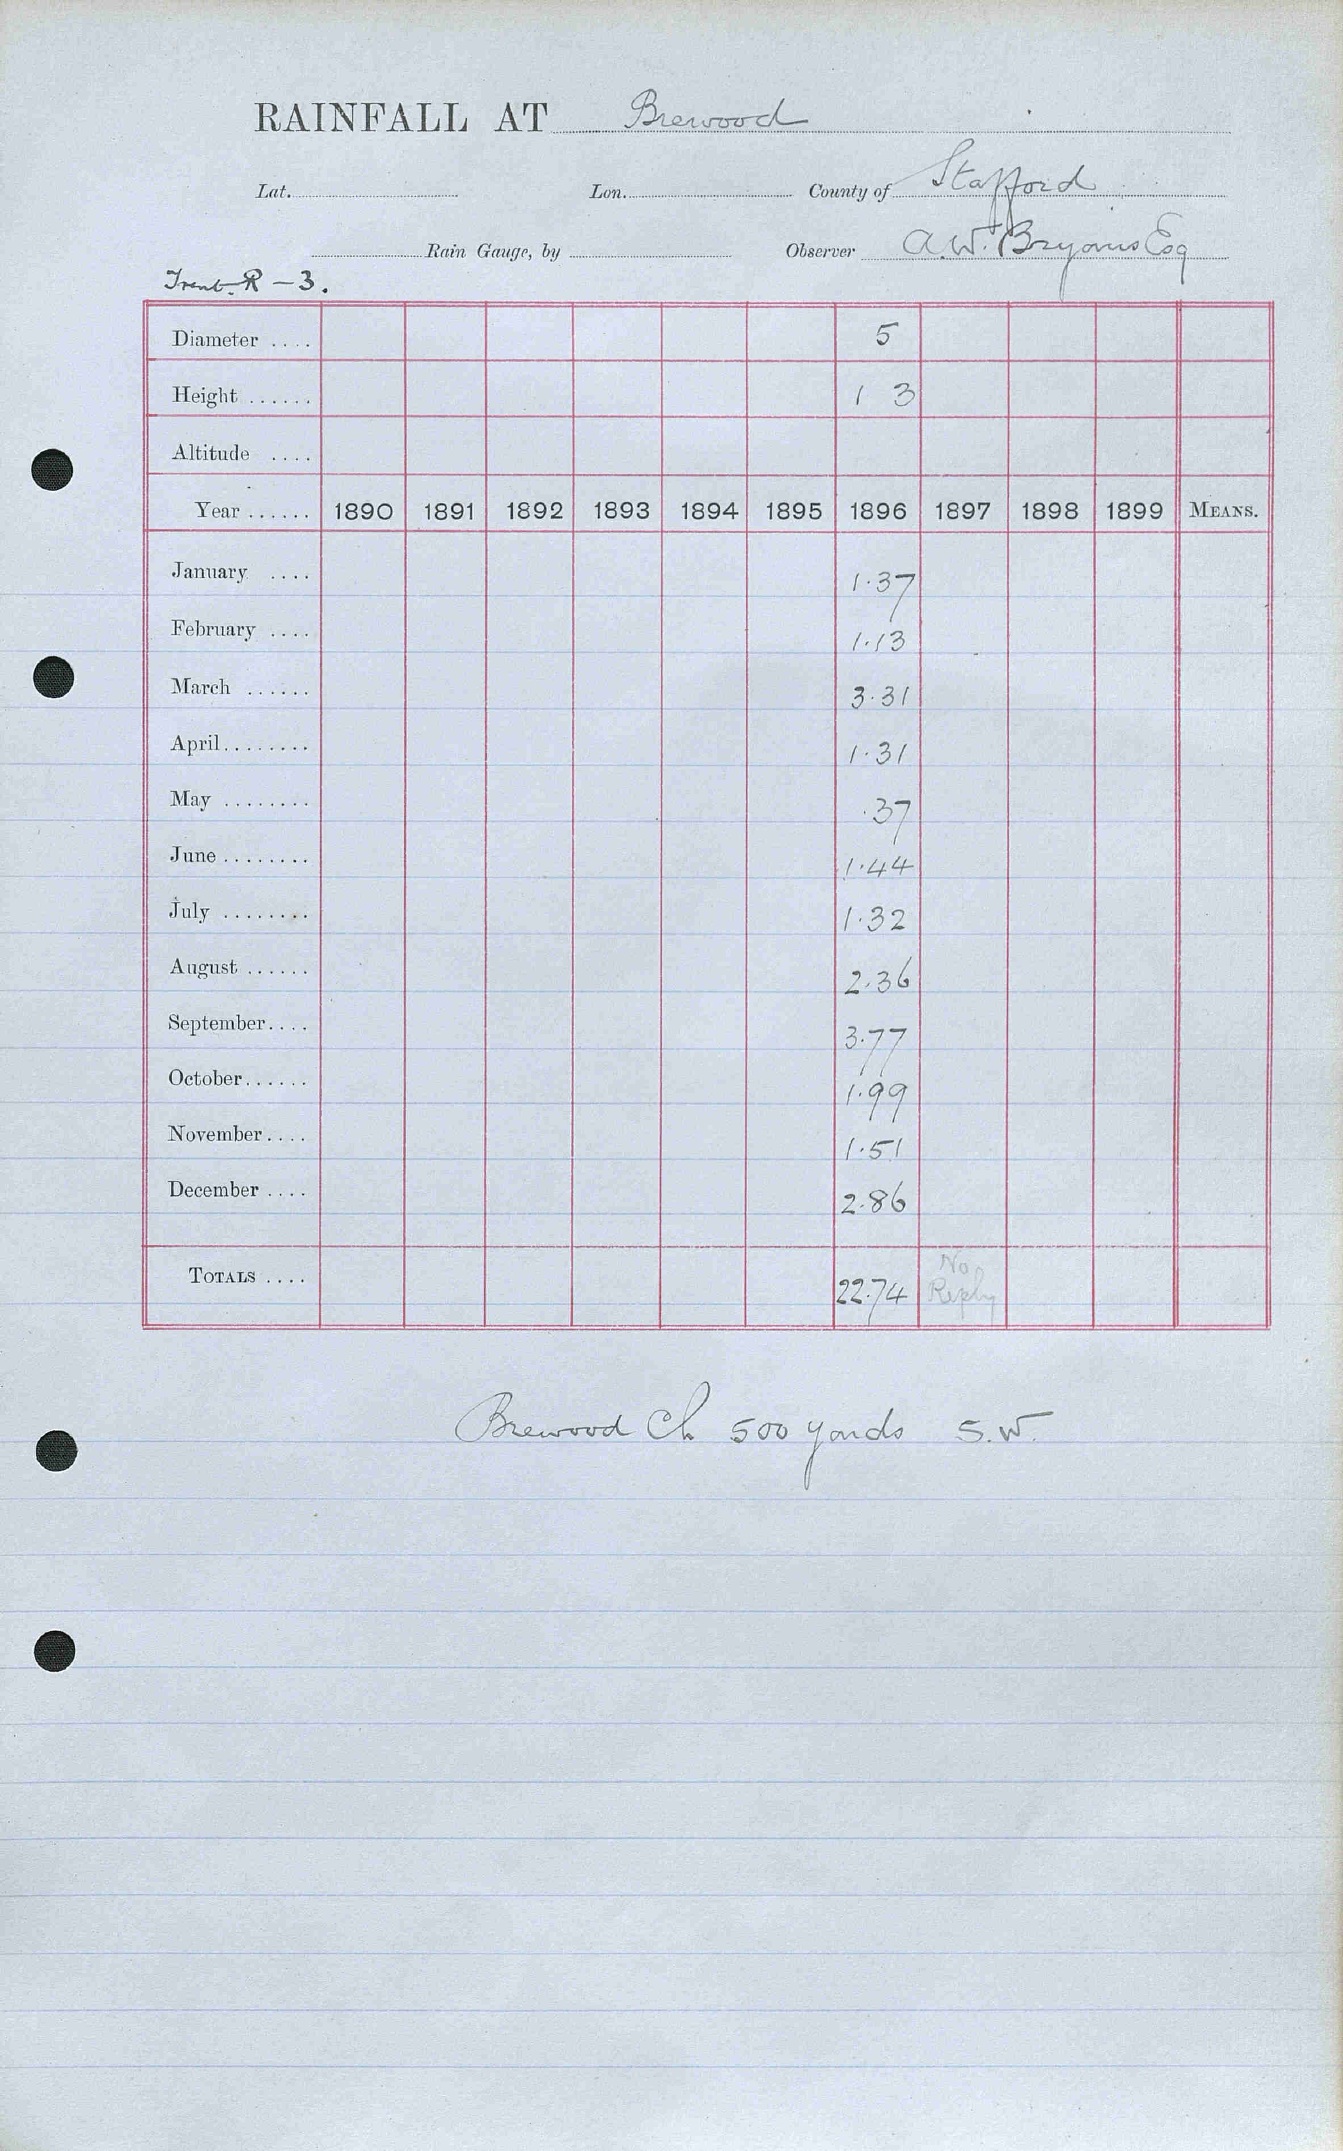 RAINFALL AT Brewood
Lat. Lon. County of Stafford
Rain Gauge, by Observer A.W. Bryans Esq
Trent. R - 3.
Diameter .... 5
Height ...... 1 3
Altitude ....
Year ...... 1890 1891 1892 1893 1894 1895 1896 1897 1898 1899 MEANS.
January .... 1.37
February .... 1.13
March ...... 3.31
April ........ 1.31
May ........ .37
June ........ 1.44
July ........ 1.32
August ...... 2.36
September .... 3.77
October ...... 1.99
November .... 1.51
December .... 2.86
TOTALS .... 22.74 No Reply
Brewood Ch 500 yards S.W.